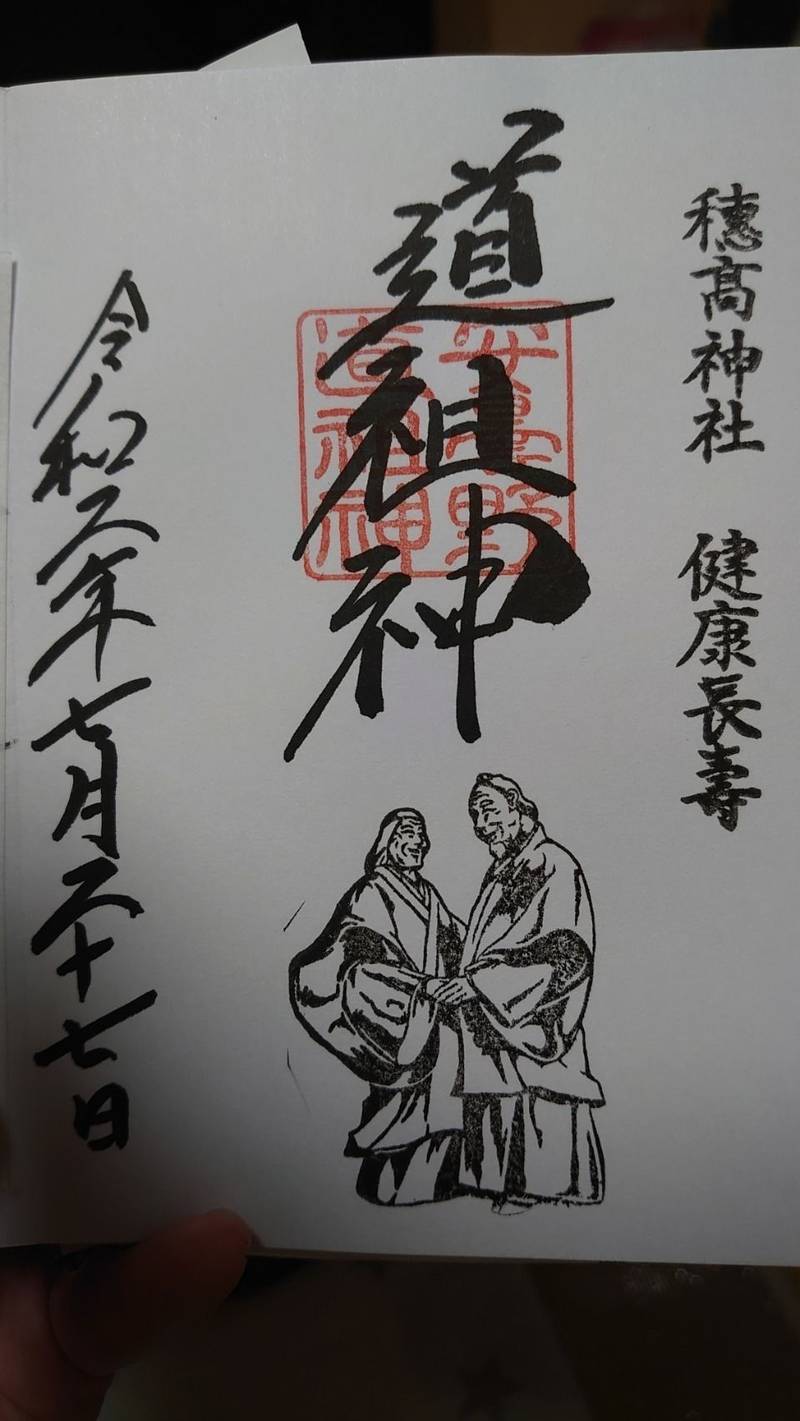 穂髙神社 健康長壽
道祖神
安曇野
道祖神
令和二年七月二十七日